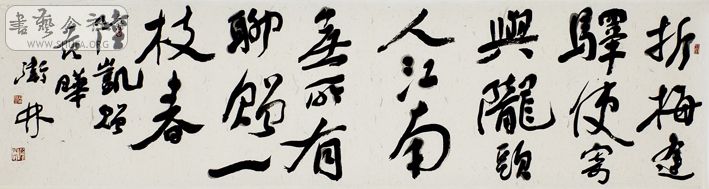 折梅逢
驛使寄
與隴頭
人江南
無所有
聊贈一
枝春
陸凱贈
范曄
林
書藝公社